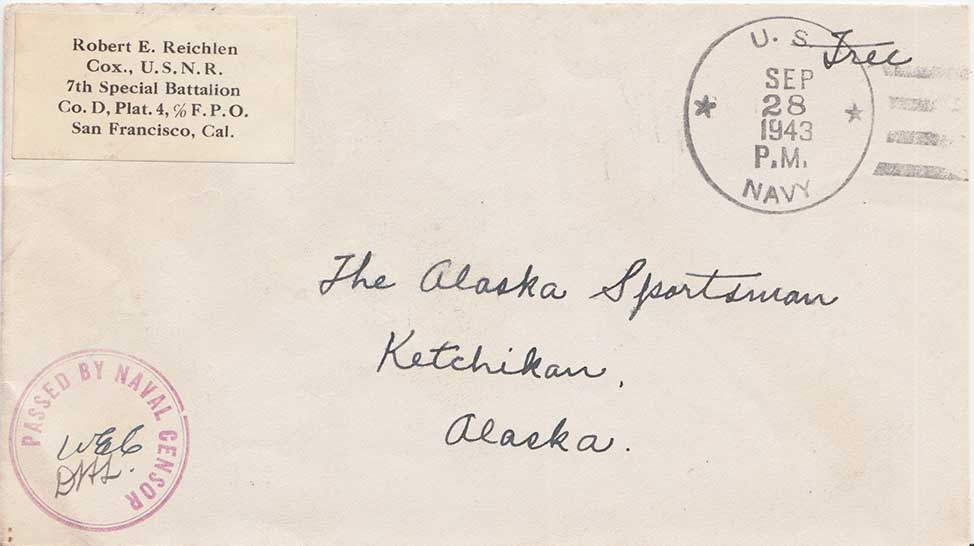 Robert E. Reichlen
Cox., U.S.N.R.
7th Special Battalion
Co. D, Plat. 4, c/o F.P.O.
San Francisco, Cal.
U. S.
Free
SEP
28
1943
P.M.
NAVY
The Alaska Sportsman
Ketchikan,
Alaska.
PASSED BY NAVAL CENSOR